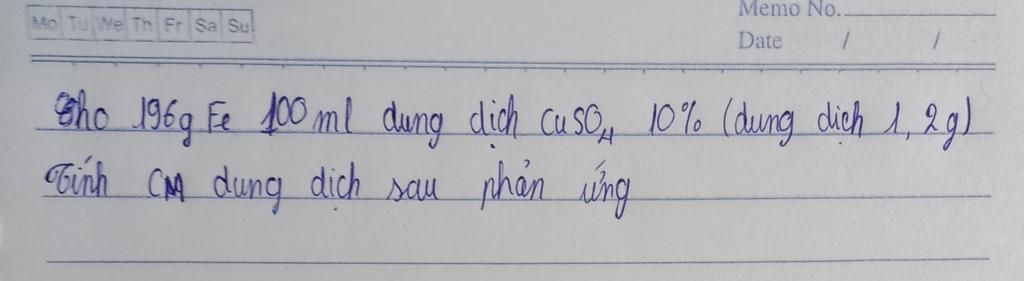 Mo Tu We Th Fr Sa Su
Memo No.
Date / /
Cho 196g Fe 100ml dung dịch CuSO4 10% (dung dịch 1,2g)
Tính CM dung dịch sau phản ứng